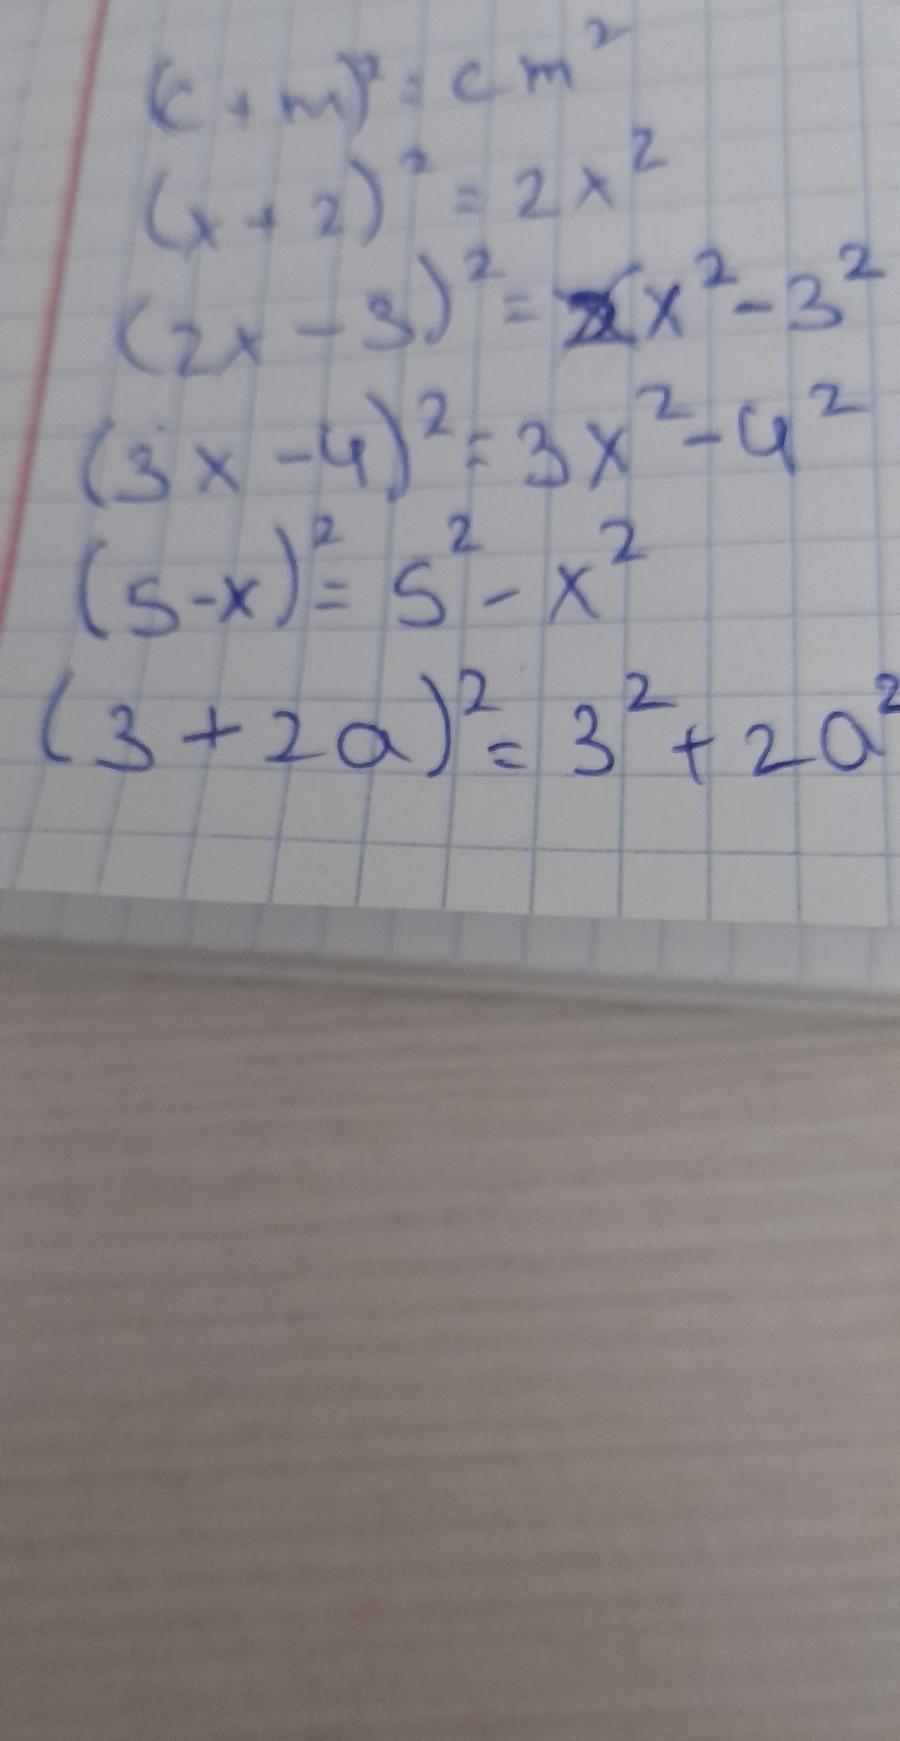 (c + m)² = cm²
(x + 2)² = 2x²
(2x - 3)² = x² - 3²
(3x - 4)² = 3x² - 4²
(5 - x)² = 5² - x²
(3 + 2a)² = 3² + 2a²